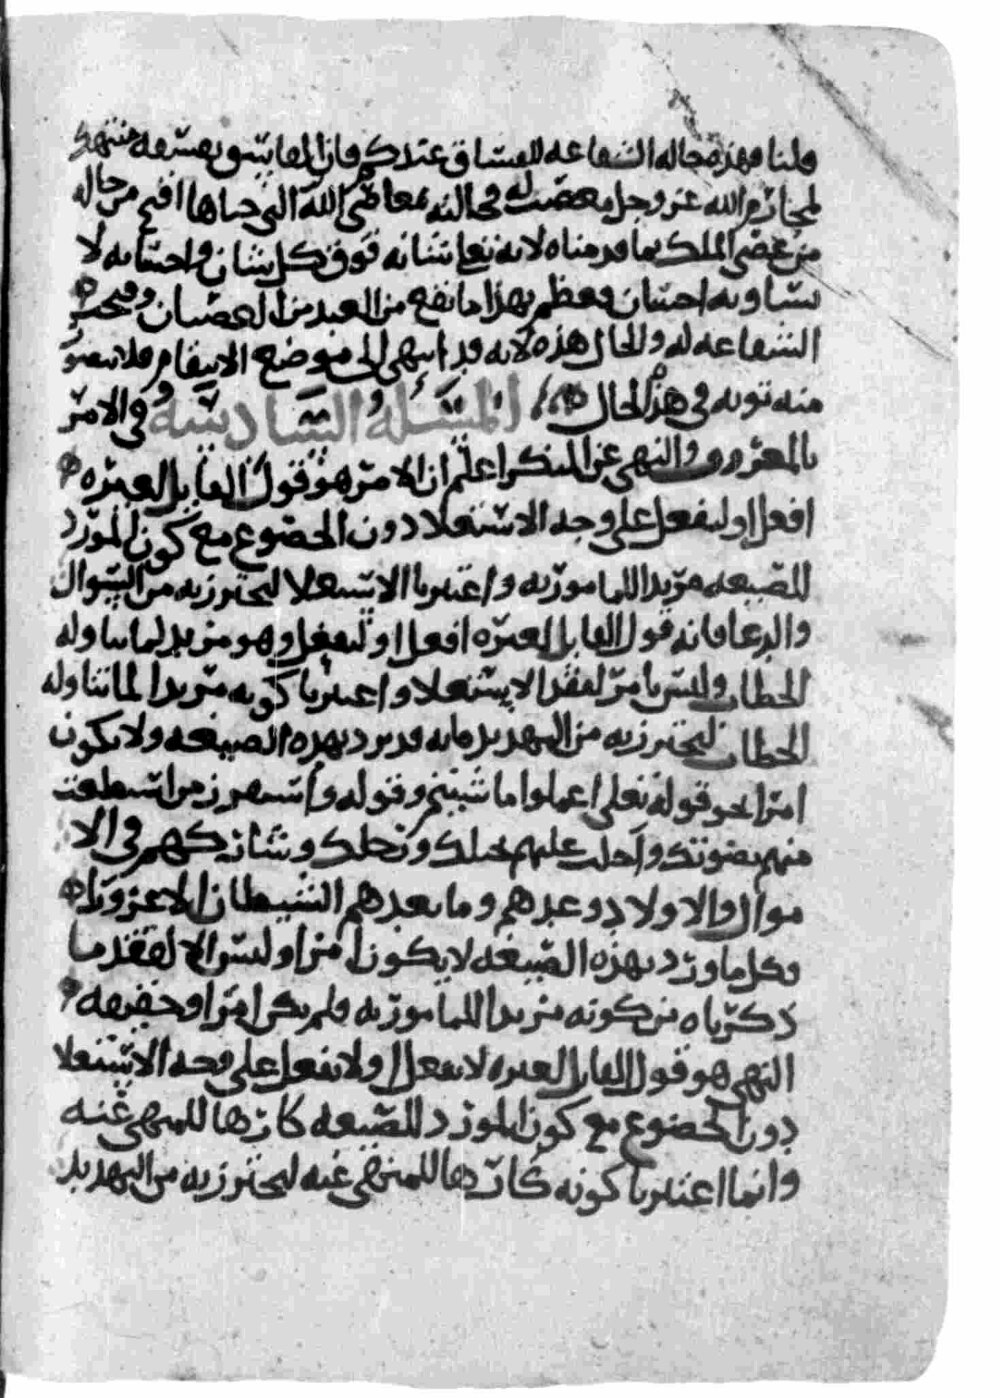 قلنا فهذه حاله الشفاعه للفساق عندكم فان الفاسق بفسقه منتهك
لمحارم الله عز وجل معصيته له في حاليه بمعاصي الله التي جناها اقبح من حاله
من عصى الملك بما قدمناه لانه تعلى شانه فوق كل شان واحسانه لا
يساويه احسان فعظم بهذا ما يقع من العبد من العصيان وقبحت
الشفاعه له والحال هذه لانه قد انتهى الى موضع الانتقام فلا
منه توبه في هذ الحال المسئله السادسه في الامر
بالمعروف والنهي عن المنكر اعلم ان الامر هو قول القايل لغيره
افعل او ليفعل على وجه الاستعلا دون الخضوع مع كون المورد
للصيغه مريدا للمامور به واعتبرنا الاستعلا ليحترز به من السوال
والدعا فانه قول القايل لغيره افعل او ليفعل وهو مريد لما يتناوله
الخطاب وليس بامر لفقد الاستعلا واعتبرنا كونه مريدا لما يتناوله
الخطاب ليحترز به من التهديد فانه قد يرد بهذه الصيغه ولا يكون
امرا نحو قوله تعلى اعملوا ما شيتم وقوله واستفزز من استطعت
منهم بصوتك واجلب عليهم بخيلك ورجلك وشاركهم في الا
موال والاولاد وعدهم وما يعدهم الشيطان الا غرورا
فكل ما ورد بهذه الصيغه لا يكون امرا وليس الا لفقد ما
ذكرناه من كونه مريدا للمامور به فلم يكن امرا وحقيقه
النهي هو قول القايل لغيره لا تفعل او لا يفعل على وجه الاستعلا
دون الخضوع مع كون المورد للصيغه كارها للمنهي عنه
وانما اعتبرنا كونه كارها للمنهي عنه ليحترز به من التهديد